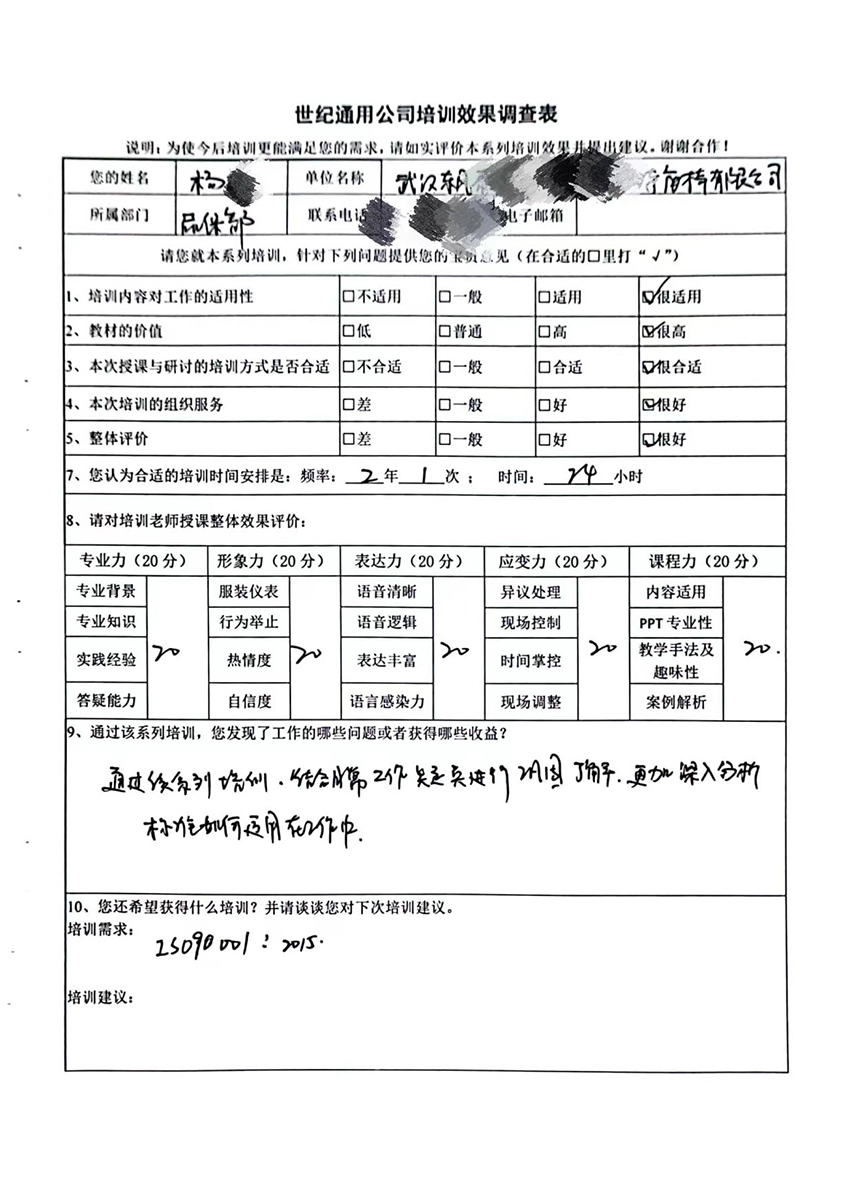 世纪通用公司培训效果调查表
说明：为使今后培训更能满足您的需求，请如实评价本系列培训效果并提出建议。谢谢合作！
您的姓名 杨 单位名称 武汉东风 有限公司
所属部门 品保部 联系电话 电子邮箱
请您就本系列培训，针对下列问题提供您的宝贵意见（在合适的□里打“√”）
1、培训内容对工作的适用性 □不适用 □一般 □适用 ☑很适用
2、教材的价值 □低 □普通 □高 ☑很高
3、本次授课与研讨的培训方式是否合适 □不合适 □一般 □合适 ☑很合适
4、本次培训的组织服务 □差 □一般 □好 ☑很好
5、整体评价 □差 □一般 □好 ☑很好
7、您认为合适的培训时间安排是：频率：2年1次； 时间：24小时
8、请对培训老师授课整体效果评价：
专业力（20分） 形象力（20分） 表达力（20分） 应变力（20分） 课程力（20分）
专业背景 服装仪表 语音清晰 异议处理 内容适用
专业知识 行为举止 语音逻辑 现场控制 PPT专业性
实践经验 20 热情度 20 表达丰富 20 时间掌控 20 教学手法及趣味性 20.
答疑能力 自信度 语言感染力 现场调整 案例解析
9、通过该系列培训，您发现了工作的哪些问题或者获得哪些收益？
通过该系列培训，结合日常工作 进行 了解，更加深入分析
标准如何适用在工作中.
10、您还希望获得什么培训？并请谈谈您对下次培训建议。
培训需求：
ISO90001：2015.
培训建议：